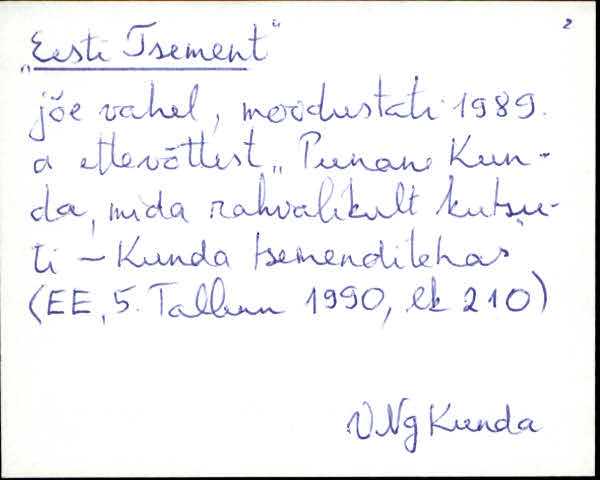 2
„Eesti Tsement"
jõe vahel, moodustati 1989.
a ettevõttest „Punane Kun-
da, mida rahvalikult kutsu-
ti – Kunda tsemenditehas
(EE, 5. Tallinn 1990, lk 210)
VNg Kunda